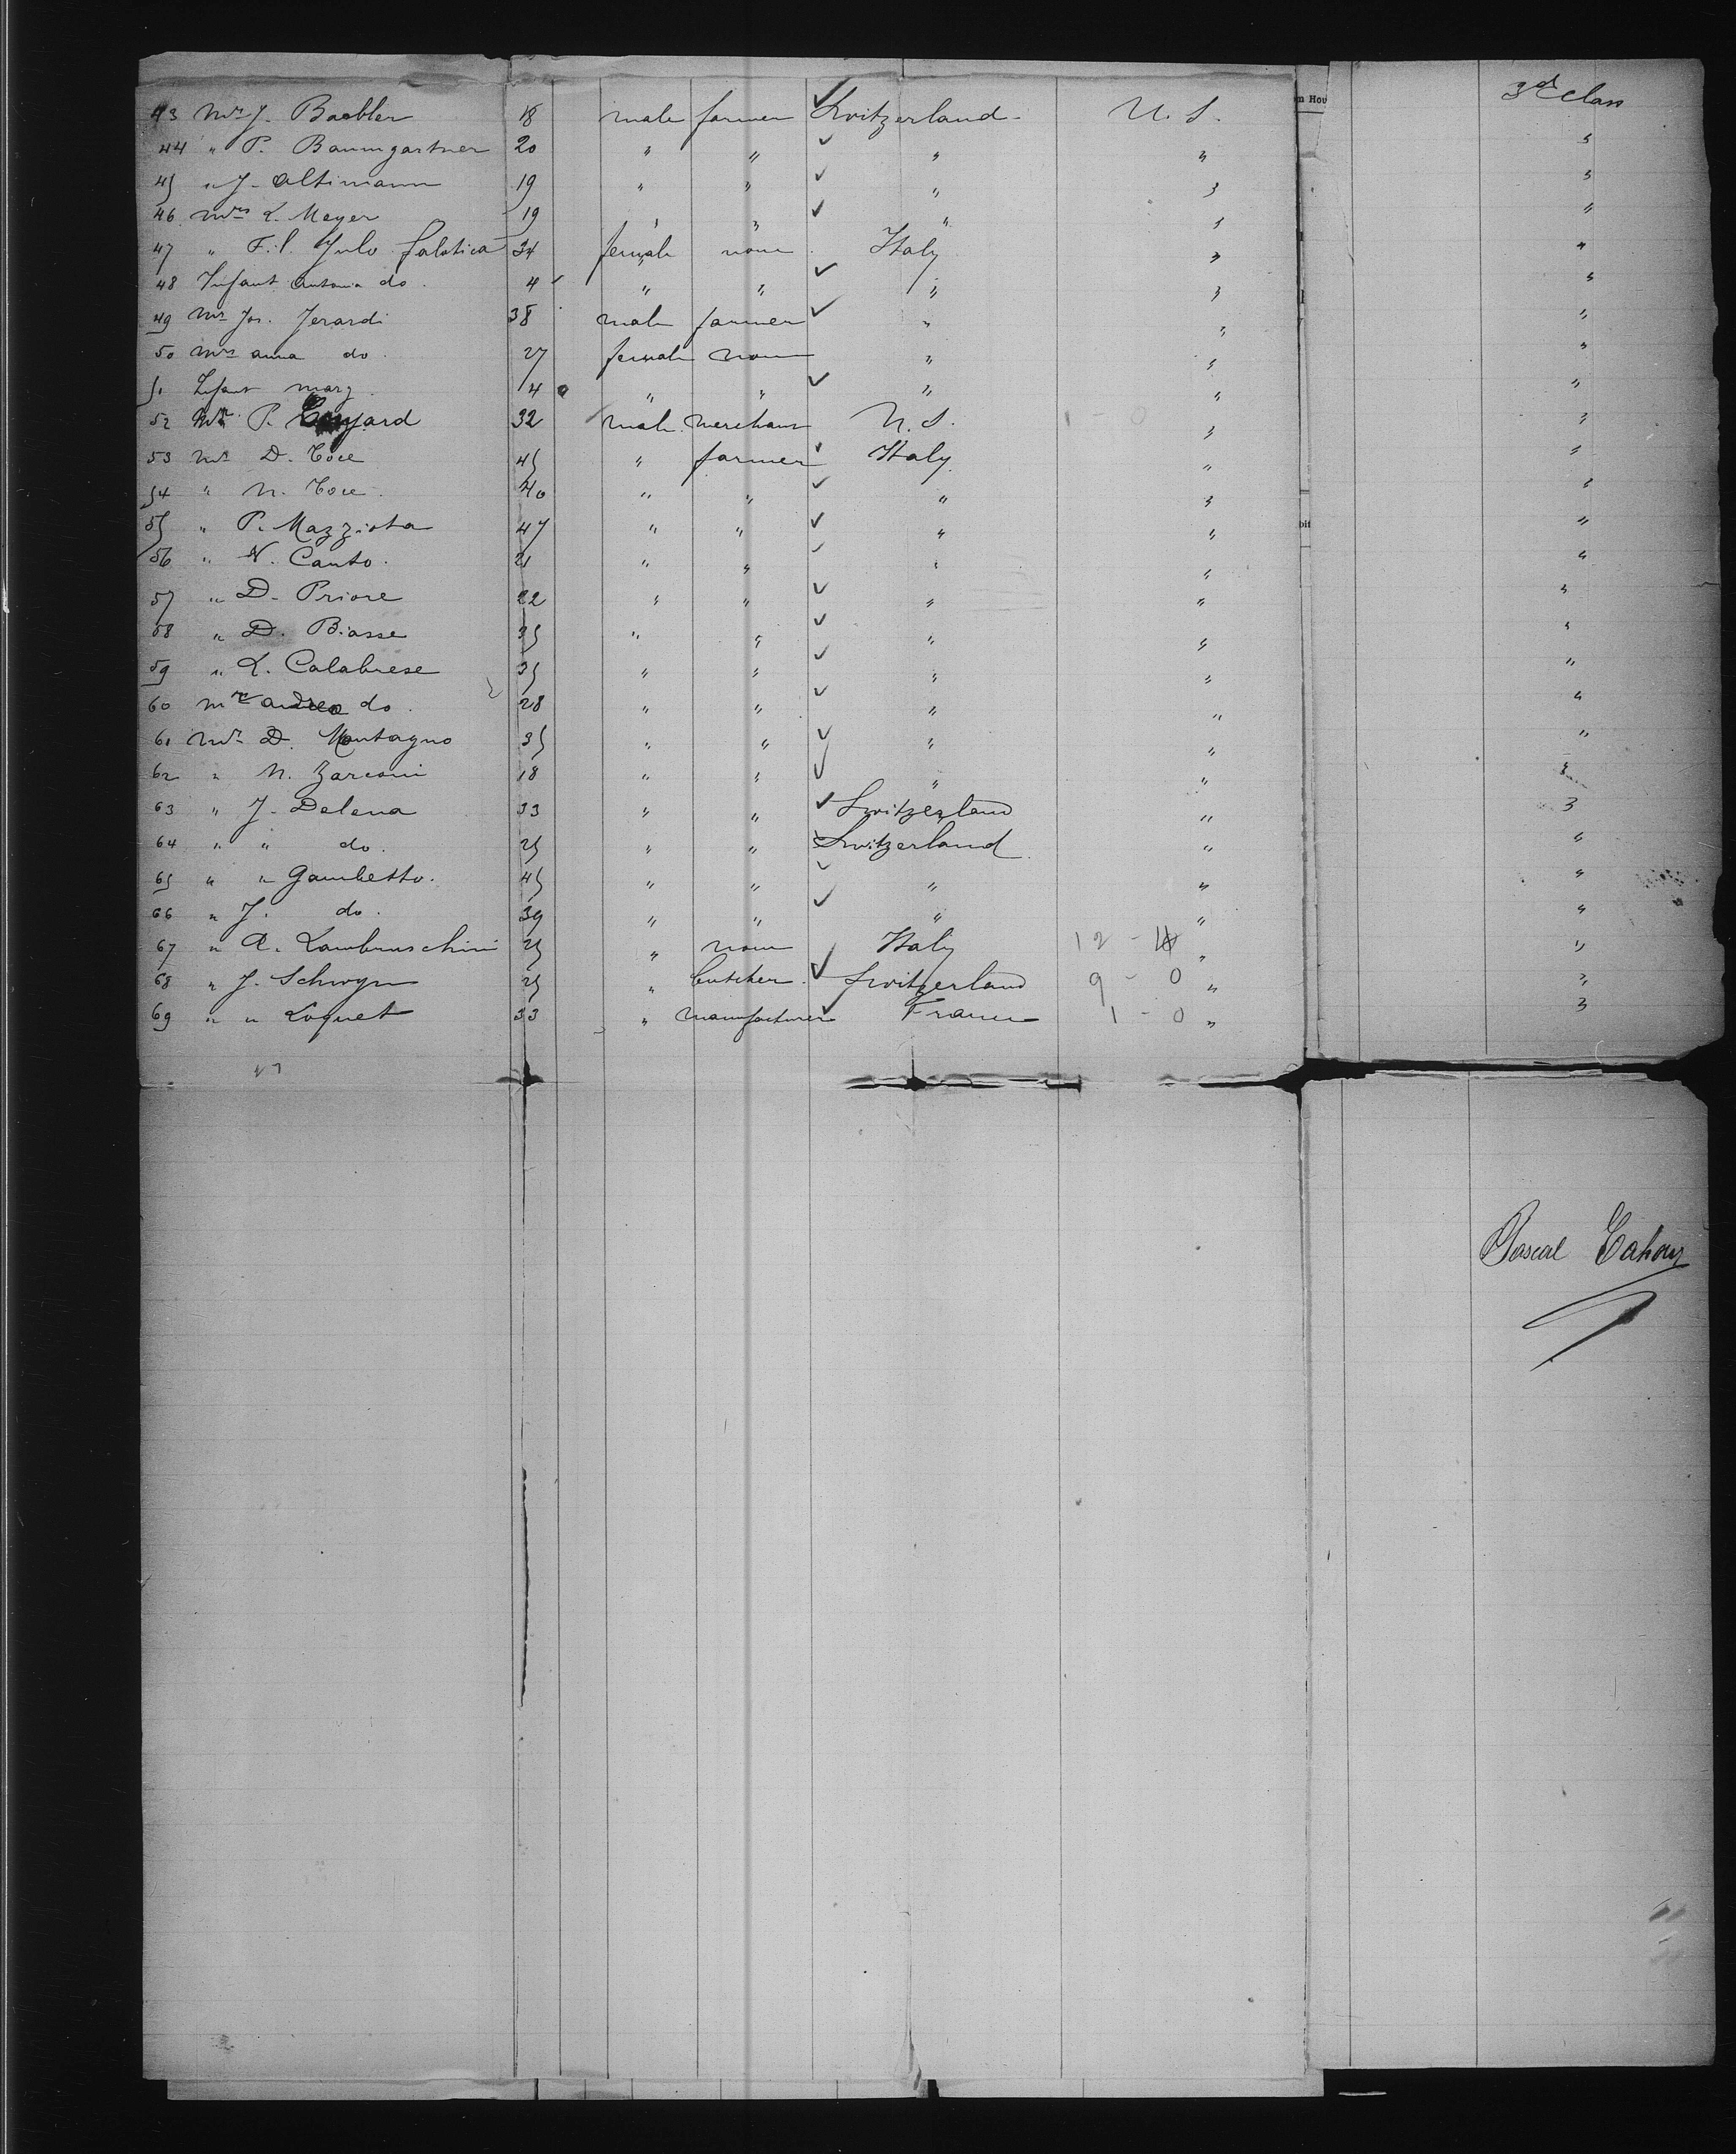 43 Mr J. Baebler 18 male farmer Switzerland U. S. 3d Class
44 " P. Baumgartner 20 " " " " "
45 " J. Altimann 19 " " " " "
46 Mrs L. Meyer 19 " " " " "
47 " F.l. Julo falatica 34 female none Italy " "
48 Infant Antonia do. 4 " " " " "
49 Mr Jos. Jerardi 38 male farmer " " "
50 Mrs anna do. 27 female none " " "
51 Infant mary 4 " " " " "
52 Mr P. 32 male merchant U. S. 1 - 0 " "
53 Mr D. Coce 45 " farmer Italy " "
54 " N. Coce. 40 " " " " "
55 " P. Mazziota 47 " " " " "
56 " N. Canto. 21 " " " " "
57 " D. Priore 22 " " " " "
58 " D. Biasse 35 " " " " "
59 " L. Calabrese 35 " " " " "
60 Mr andrea do. 28 " " " " "
61 Mr D. Montagno 35 " " " " "
62 " N. Zarconi 18 " " " " "
63 " J. Delena 33 " " Switzerland " "
64 " " do. 25 " " Switzerland " "
65 " " Gambetto. 45 " " " " "
66 " J. do. 39 " " " " "
67 " A. Lambruschini 25 " none Italy 12 - " "
68 " J. Schwyn 25 " butcher. Switzerland 9 - 0 " "
69 " " Loquet 33 " manufacturer France 1 - 0 " "
Pascal